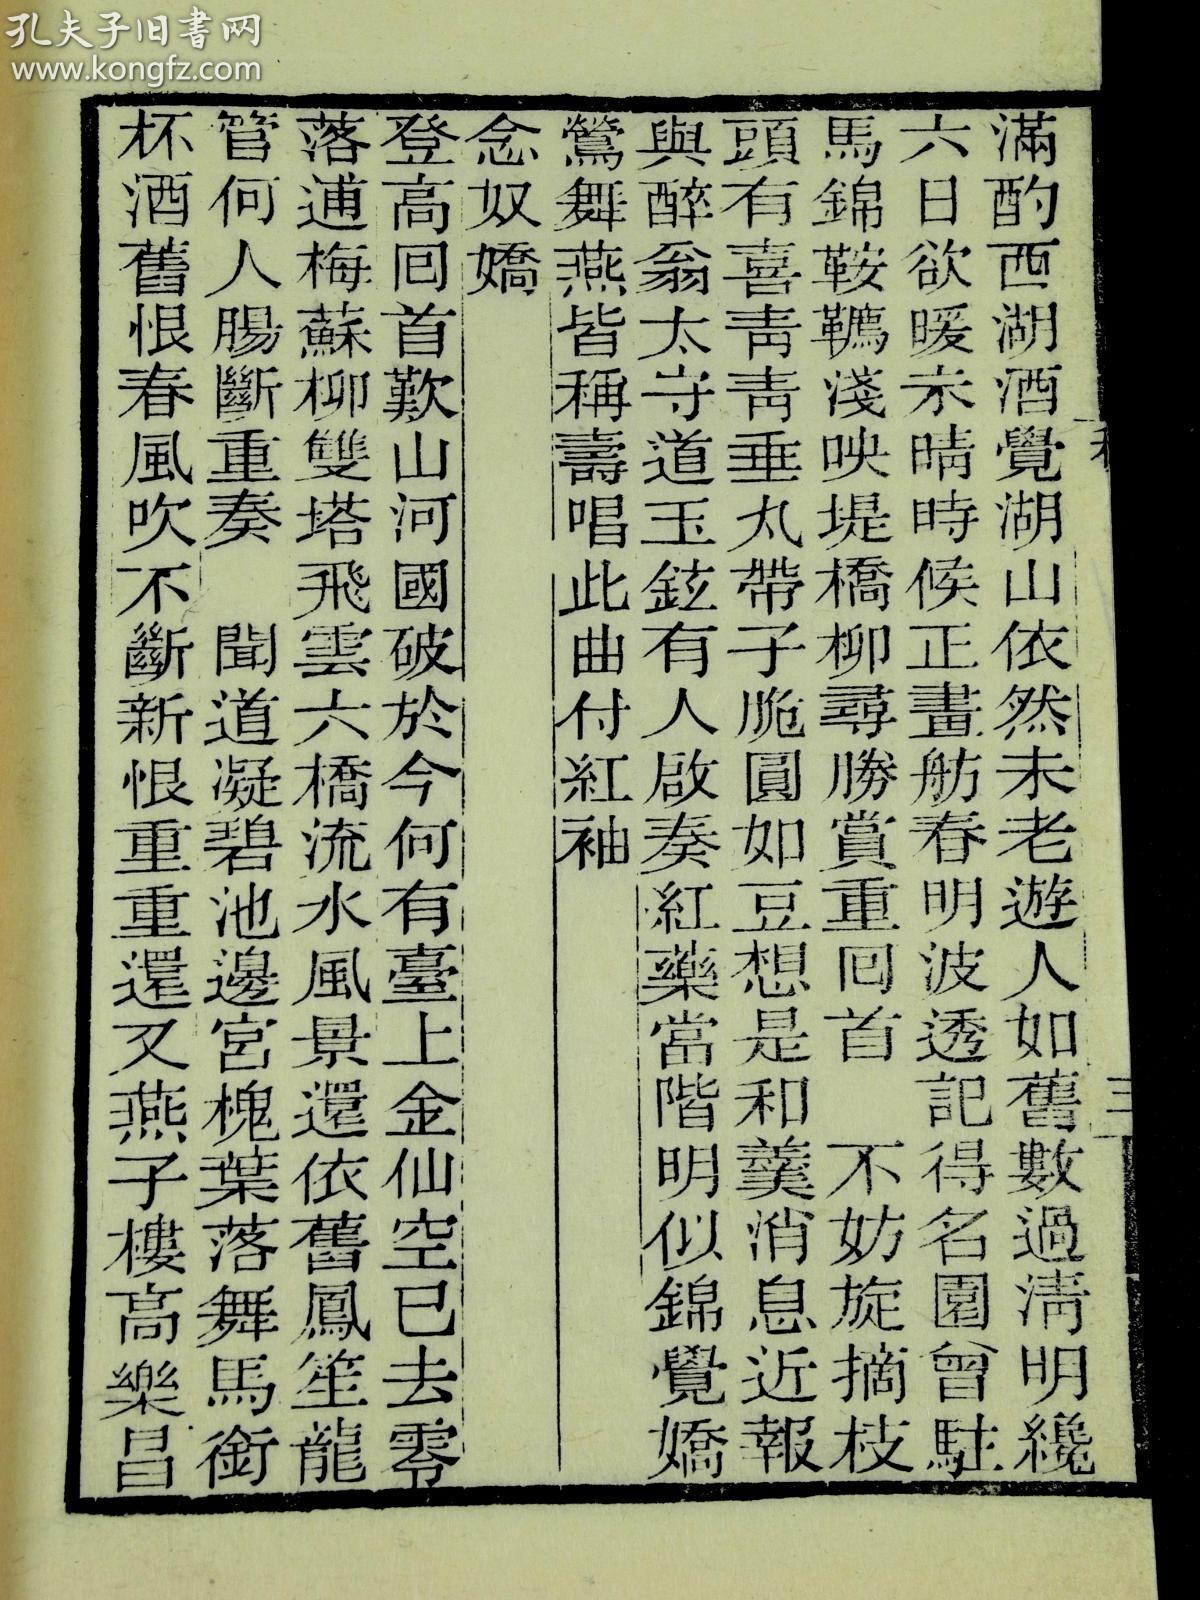 孔夫子旧书网
www.kongfz.com
滿酌西湖酒覺湖山依然未老遊人如舊數過淸明纔
六日欲暖未晴時候正畫舫春明波透記得名園曾駐
馬錦鞍韉淺映堤橋柳尋勝賞重回首　不妨旋摘枝
頭有喜靑靑垂丸帶子脆圓如豆想是和羹消息近報
與醉翁太守道玉鉉有人啟奏紅藥當階明似錦覺嬌
鶯舞燕皆稱壽唱此曲付紅袖
念奴嬌
登高回首歎山河國破於今何有臺上金仙空已去零
落逋梅蘇柳雙塔飛雲六橋流水風景還依舊鳳笙龍
管何人腸斷重奏　聞道凝碧池邊宮槐葉落舞馬銜
杯酒舊恨春風吹不斷新恨重重還又燕子樓高樂昌
三